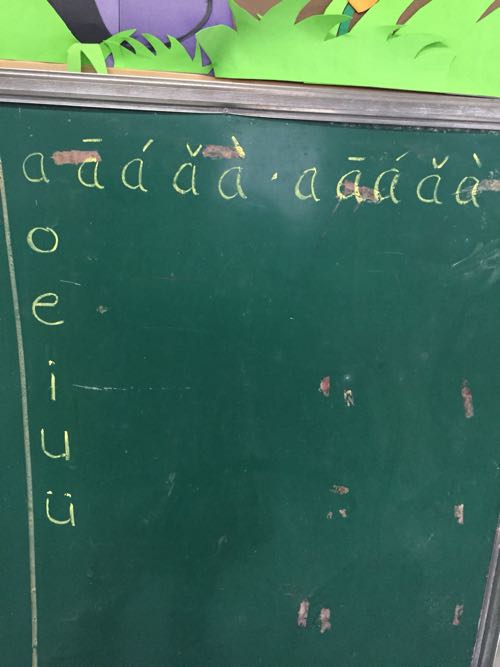 a ā á ǎ à · a ā á ǎ à
o
e
i
u
ü